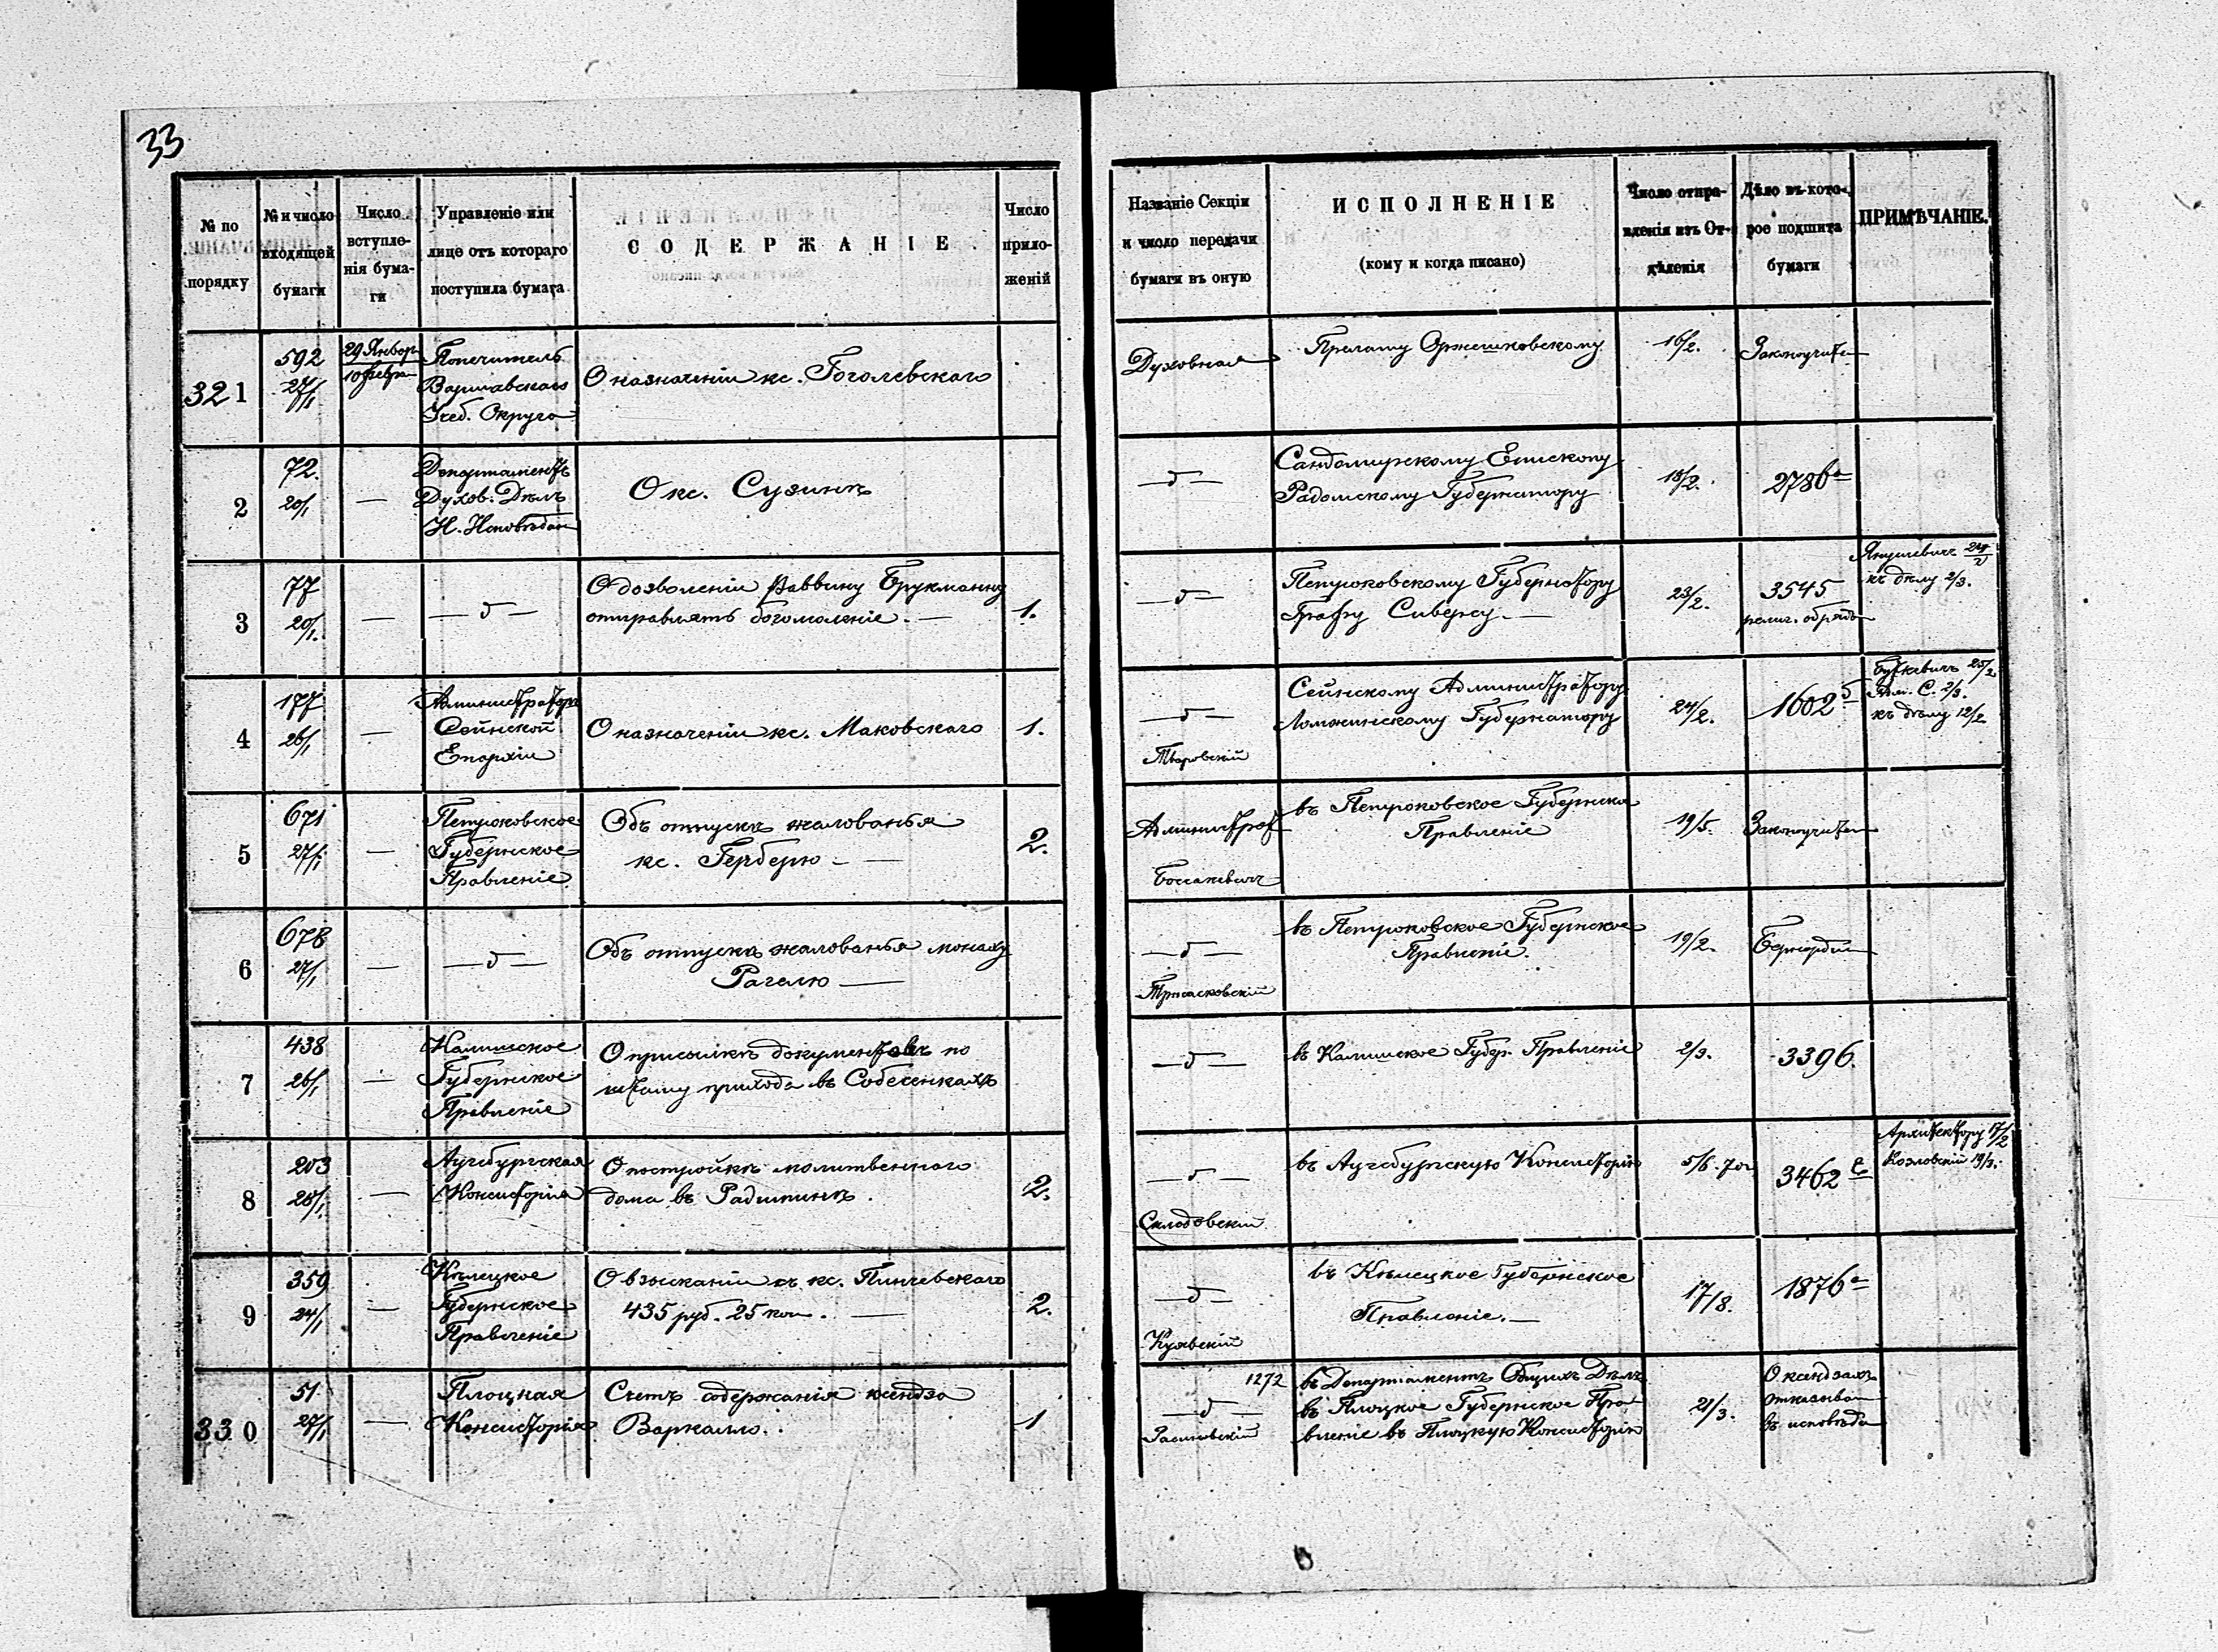 33
№ по порядку
№ и число входящей бумаги
Число вступленія бумаги
Управленіе или лице отъ котораго поступила бумага
СОДЕРЖАНІЕ.
Число приложеній
Названіе Секціи и число передачи бумаги въ оную
ИСПОЛНЕНІЕ
(кому и когда писано)
Число отправленія изъ Отдѣленія
Дѣло въ которое подшита бумаги
ПРИМѢЧАНІЕ.
321
592
27/1
29 Январ
10 февра
Попечитель
Варшавскаго
Учеб. Округа
О назначеніи кс. Гоголевскаго
Духовная
Прелату Оржешковскому
16/2.
Законоучите
2
72.
20/1
—
Департаментъ
Духов. Дѣлъ
И. Исповѣдан
О кс. Сузинѣ
— д —
Сандомирскому Епископу
Радомскому Губернатору
18/2.
2786 а
3
77
20/1.
—
— д —
О дозволеніи Раввину Брукману
отправлять богомоленіе. —
1.
— д —
Петроковскому Губернатору
Графу Сиверсу. —
23/2.
3545
религ. обряд
Янушевичъ 24/2
къ дѣлу 2/3.
4
177
26/1
—
Администратора
Сейнской
Епархіи
О назначеніи кс. Маковскаго
1.
— д —
Сейнскому Администратору
Ломжинскому Губернатору
24/2.
1602 д
Буткевичъ 25/2.
С. 2/3.
къ дѣлу 12/2
5
671
27/1
—
Петроковское
Губернское
Правленіе
Объ отпускѣ жалованья
кс. Герберю — —
2.
Администрат
въ Петроковское Губернско
Правленіе
19/5.
Законоучител
6
678
27/1
—
— д —
Объ отпускѣ жалованья монаху
Рагелю —
— д —
въ Петроковское Губернское
Правленіе.
19/2.
Бернардин
7
438
26/1
—
Калишское
Губернское
Правленіе
О присылкѣ документовъ по
штату прихода въ Собесенкахъ
— д —
въ Калишское Губер. Правленіе
2/3.
3396.
8
203
25/1.
—
Аугсбургская
Консисторія
О постройкѣ молитвеннаго
дома въ Радишинѣ.
2.
— д —
Склодовскій
въ Аугсбургскую Консисторію
5/6.
3462 е
Архитектору 17/2
Козловскій 19/3.
9
359
24/1
—
Кѣлецкое
Губернское
Правленіе
О взысканіи съ кс. Пинчевскаго
435 руб. 25 коп. —
2.
— д —
Куявскій
въ Кѣлецкое Губернское
Правленіе. —
17/8.
1876 а
330
51
27/1
—
Плоцкая
Консисторія
Счетъ содержанія ксендза
Варкалло.
1
1272
— д —
въ Департаментъ Общихъ Дѣлъ
въ Плоцкое Губернское Пра
вленіе въ Плоцкую Консисторію
21/3.
О ксендзахъ
отказыва
въ исповѣди